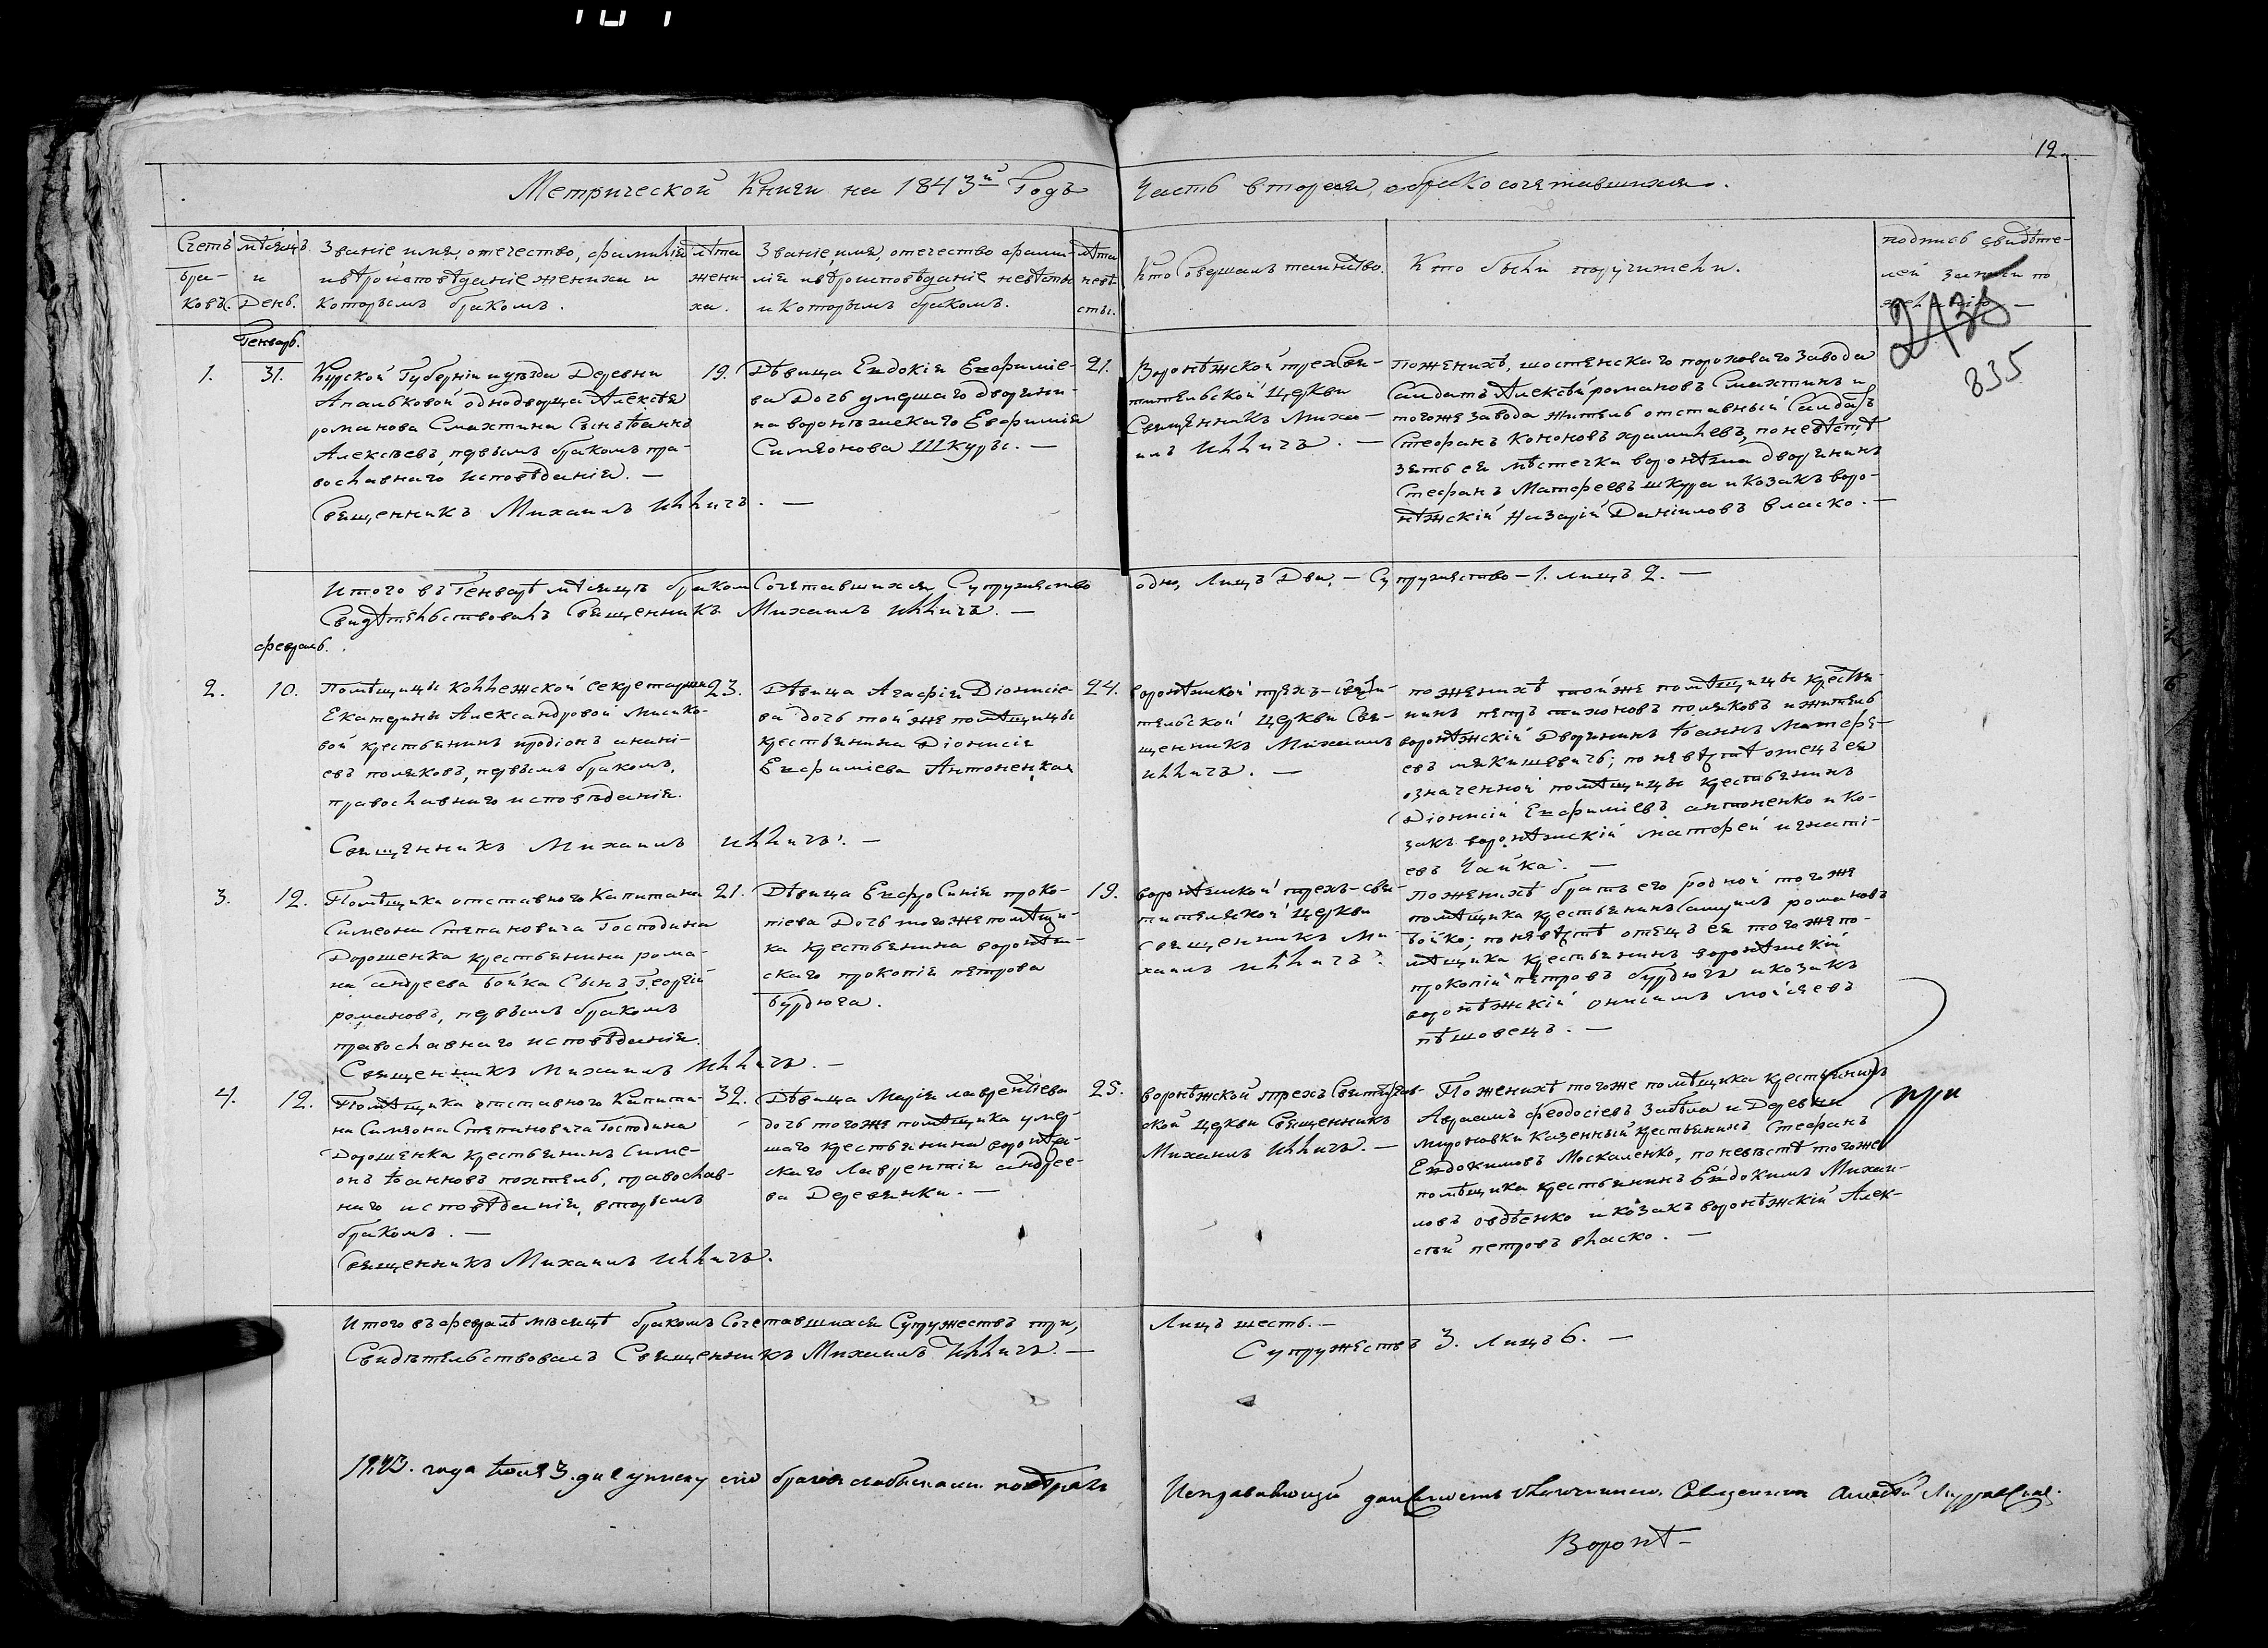 12.
Метрической Книги на 1843й Годъ Часть вторая, о бракосочетавшихся.
Счетъ браковъ.
Мѣсяцъ и День.
Званіе, имя, отечество, фамилія
и вѣроисповѣданіе жениха и
которымъ бракомъ.
лѣта
жени-
ха.
Званіе, имя, отечество фами-
лія и вѣроисповѣданіе невѣсты
и которымъ бракомъ.
лѣта
невѣ-
сты.
Кто Совершалъ таинство.
Кто были поручители.
подпись свидѣте-
лей записи по
2136
835
Генварь.
1.
31.
Курской Губерніи и уѣзда Деревни
Апальковой однодворца Алексѣя
романова Смахтина Сынъ Іоаннъ
Алексѣевъ, первымъ бракомъ пра-
вославнаго исповѣданія. —
Священникъ Михаилъ Илличъ. —
19.
Дѣвица Евдокія Евфиміе-
ва Дочь умершаго дворяни-
на воронежскаго Евфимія
Симеонова Шкуры. —
21.
Воронѣжской трехСвя-
тительской Церкви
Священникъ Миха-
илъ Илличъ. —
По женихѣ, шостенскаго пороховаго Завода
Салдатъ Алексѣй романовъ Смахтинъ и
тогоже Завода житель отставный Салдатъ
Стефанъ Кононовъ храмцевъ, по невѣстѣ
зять ея мѣстечка воронѣжа дворянинъ
Стефанъ Матфеевъ шкура и Козакъ воро-
нѣжскій Назарій Даніиловъ власко. —
Итого въ Генварѣ мѣсяцѣ бракомъ Сочетавшихся Супружество одно, Лицъ Два, — Супружество — 1. лицъ 2. —
Свидѣтельствовалъ Священникъ Михаилъ Илличъ. —
февраль.
2.
10.
Помѣщицы коллежской секретарши
Екатерины Александровой Мисико-
вой крестьянинъ иродіонъ анані-
евъ поляковъ, первымъ бракомъ,
православнаго исповѣданія.
Священникъ Михаилъ Илличъ. —
23.
Дѣвица Агафія Діонисіе-
ва дочь той же помѣщицы
крестьянина Діонисія
Евфиміева Антоненка
24.
воронѣжской трехъ-святи-
тельской церкви Свя-
щенникъ Михаилъ
Илличъ. —
по женихѣ той же помѣщицы крестья-
нинъ петръ тихоновъ поляковъ и житель
воронѣжскій Дворянинъ Іоаннъ Матфе-
евъ мякишевичъ; по невѣстѣ отецъ ея
означенной помѣщицы крестьянинъ
Діонисій Евфиміевъ антоненко и Ко-
закъ воронѣжскій матфей игнаті-
евъ Чайка. —
3.
12.
Помѣщика отставного Капитана
Симеона Степановича Господина
Дорошенка крестьянина рома-
на андреева Бойка Сынъ Георгій
романовъ, первымъ бракомъ
православнаго исповѣданія.
Священникъ Михаилъ Илличъ. —
21.
Дѣвица Евфросинія проко-
піева Дочь тогоже помѣщи-
ка крестьянина воронѣж-
скаго прокопія петрова
бурдюга.
19.
воронѣжской трехъ-свя-
тителской церкви
священникъ Ми-
хаилъ Илличъ.
По женихѣ братъ его родной тогоже
помѣщика крестьянинъ Самуилъ романовъ
Бойко; по невѣстѣ отецъ ея тогоже по-
мѣщика крестьянинъ воронѣжскій
прокопій петровъ бурдюгъ и козакъ
воронѣжскій онисимъ мойсеевъ
пѣшовецъ. —
4.
12.
Помѣщика отставного Капита-
на Симеона Степановича Господина
Дорошенка крестьянинъ Симе-
онъ Іоанновъ похтель, православ-
наго исповѣданія, вторымъ
бракомъ. —
Священникъ Михаилъ Илличъ.
32.
Дѣвица Марія лаврентіева
дочь тогоже помѣщика умер-
шаго крестьянина воронѣж-
скаго Лаврентія андрее-
ва Деревянки. —
25.
воронѣжской трехъ Святитель-
ской Церкви Священникъ
Михаилъ Илличъ. —
По женихѣ тогоже помѣщика крестьянинъ
Авраамъ феодосіевъ Забѣла и Деревни
мироновки Казенный крестьянинъ Стефанъ
Евдокимовъ Москаленко, по невѣстѣ тогоже
помѣщика крестьянинъ Евдокимъ Михаи-
ловъ овдѣенко и козакъ воронѣжскій Алек-
сѣй петровъ власко. —
при
Итого въ февралѣ мѣсяцѣ бракомъ Сочетавшихся Супружествъ три, Лицъ шесть. —
Свидѣтельствовалъ Священникъ Михаилъ Илличъ. — Супружествъ 3. Лицъ 6. —
1843. года Іюля 3. дня Исправляющій должность Священникъ
Воронѣ-